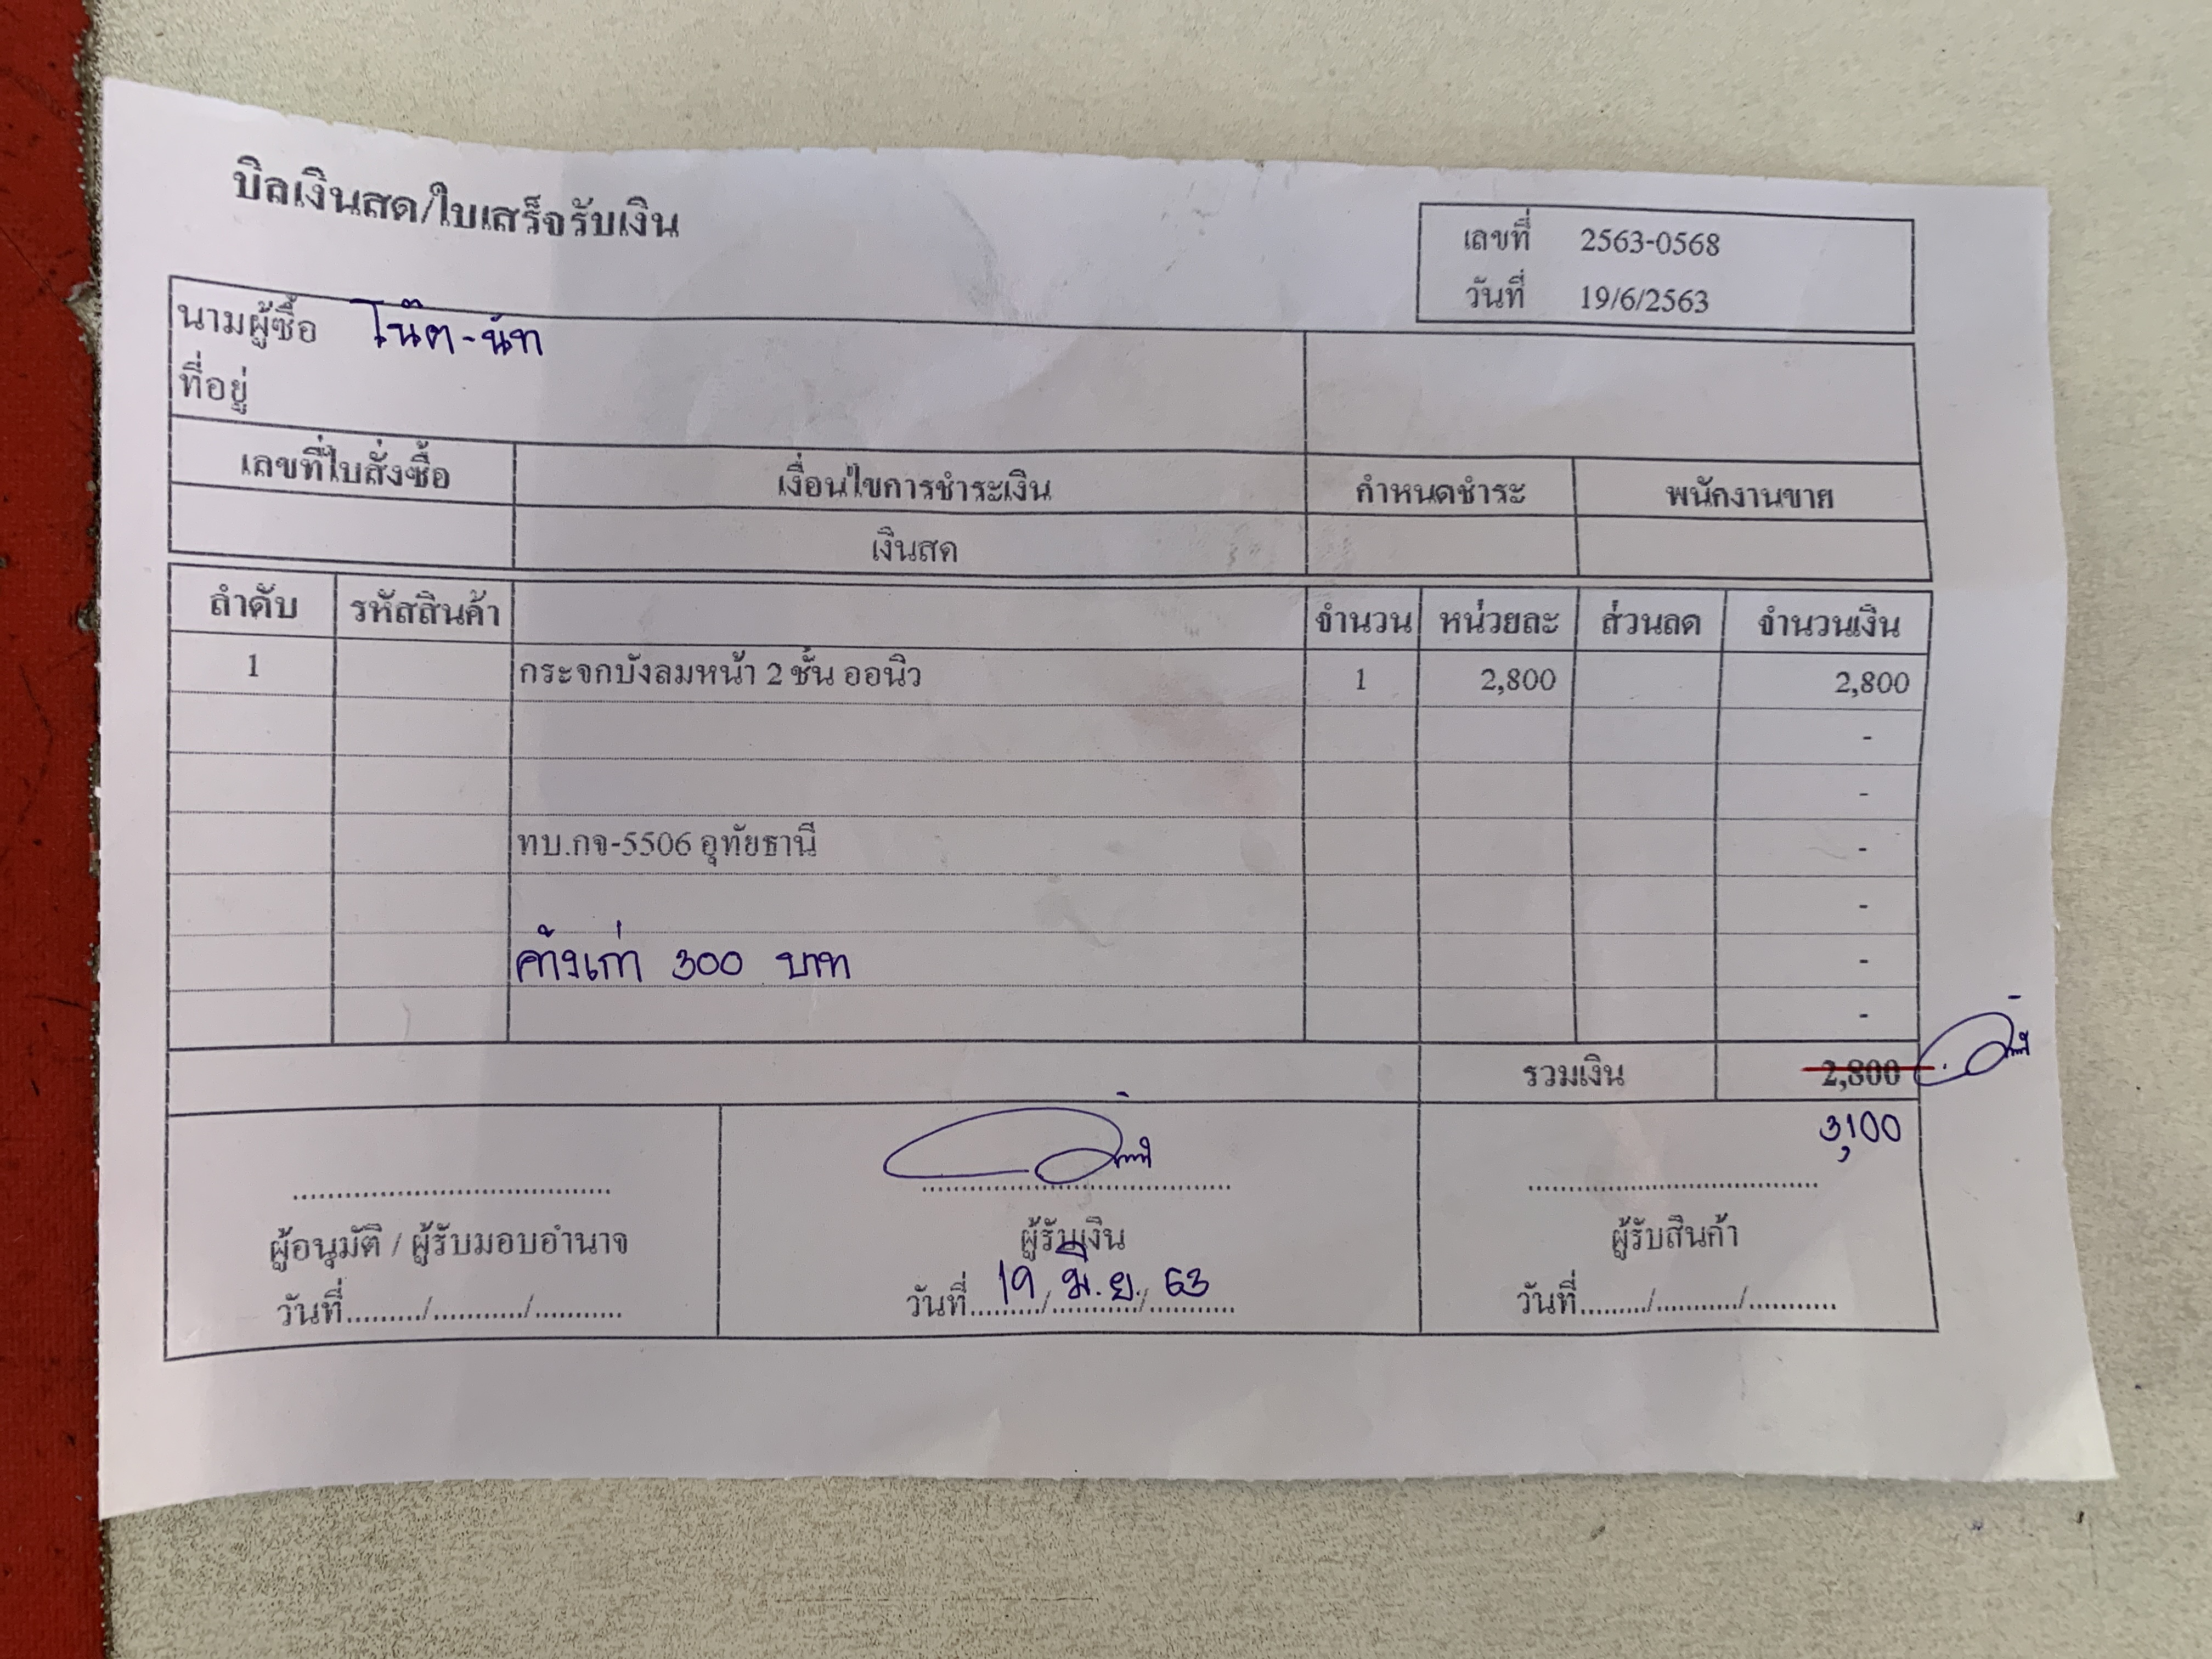 บิลเงินสด/ใบเสร็จรับเงิน
เลขที่ 2563-0568
วันที่ 19/6/2563
นามผู้ซื้อ โน๊ต-นัท
ที่อยู่
เลขที่ใบสั่งซื้อ เงื่อนไขการชำระเงิน กำหนดชำระ พนักงานขาย
เงินสด
ลำดับ รหัสสินค้า จำนวน หน่วยละ ส่วนลด จำนวนเงิน
1 กระจกบังลมหน้า 2 ชั้น ออนิว 1 2,800 2,800
-
-
ทบ.กจ-5506 อุทัยธานี -
-
ค้างเก่า 300 บาท -
-
รวมเงิน 2,800
3,100
ผู้อนุมัติ / ผู้รับมอบอำนาจ ผู้รับเงิน ผู้รับสินค้า
วันที่........./.........../........... วันที่ 19 / มิ.ย. / 63 วันที่........./.........../...........